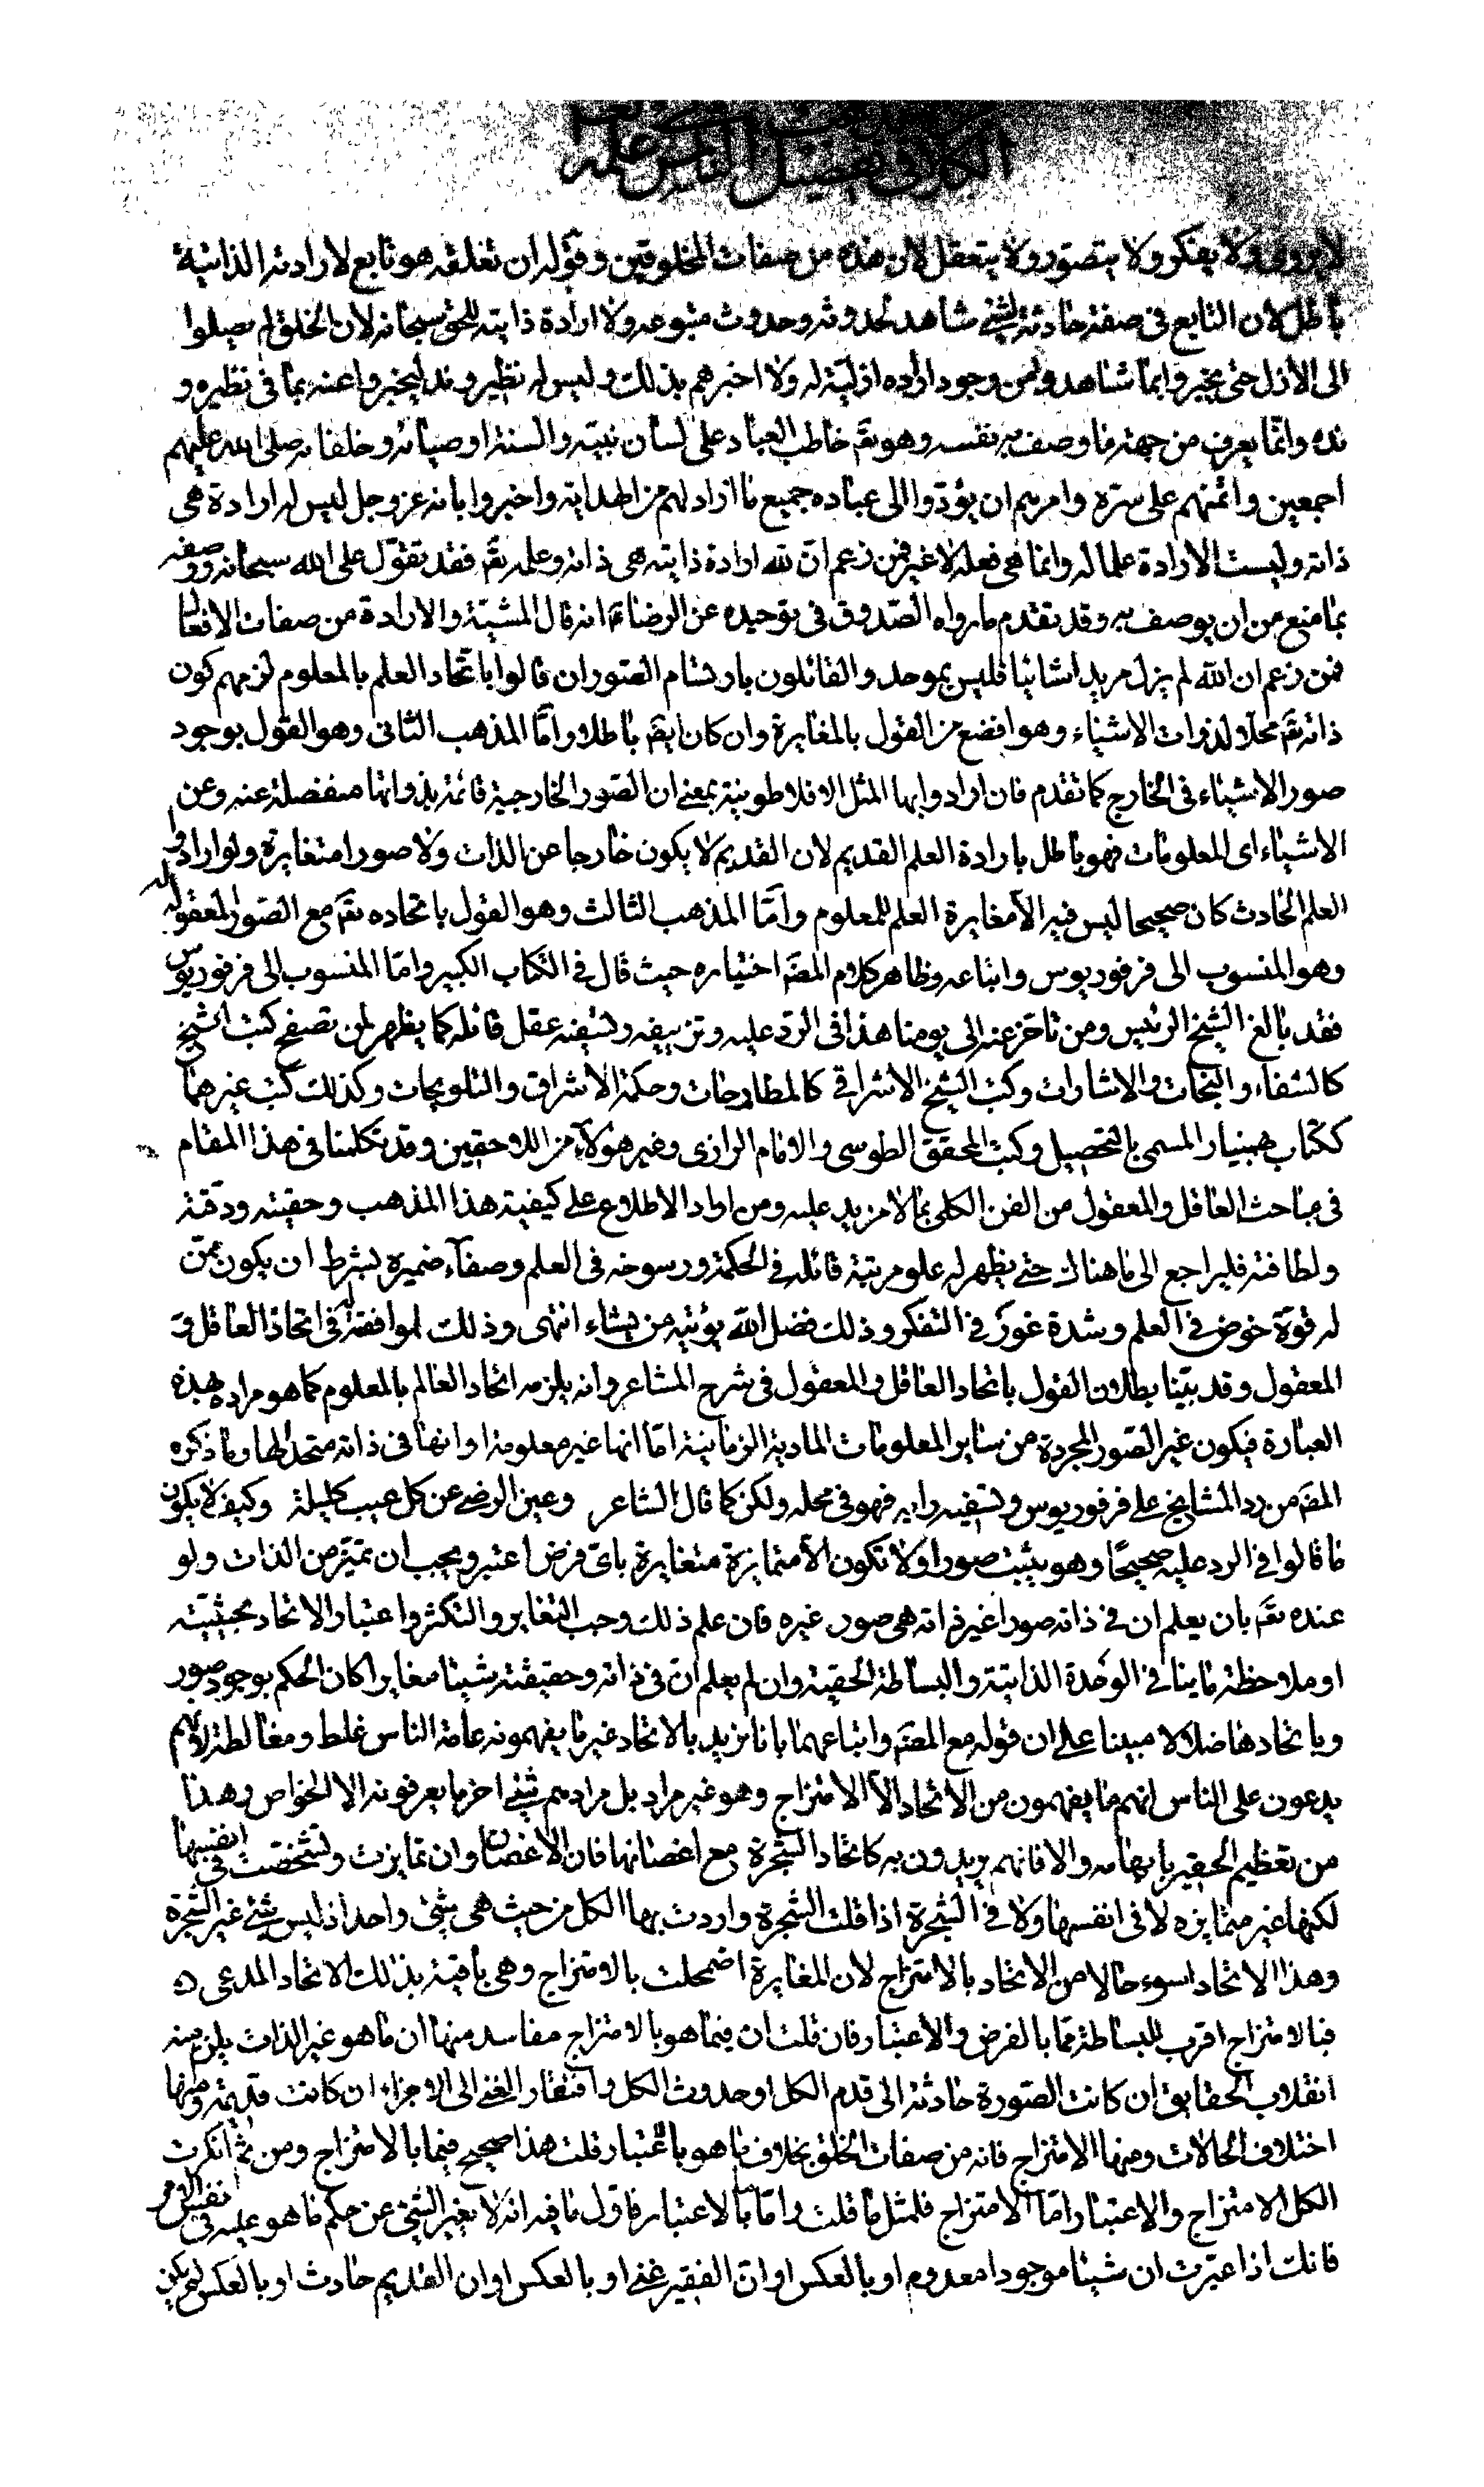 الكلام في تفصيل الناس علمه
لا يروى ولا يفكر ولا يتصور ولا يتعقل لان هذه من صفات المخلوقين وقوله ان تعلقه هو تابع لارادته الذاتية
باطل لان التابع في صفته حادثة لشئ شاهد لحدوثه وحدوث متبوعه ولا ارادة ذاتيه للحق سبحانه لان الخلق لم يصلوا
الى الازل حتى يخبروا بما شاهدوه من وجود اراده ازلية له ولا اخبرهم بذلك وليس له نظير وند ليخبروا عنه بما في نظيره و
نده وانما يعرف من جهة ما وصف به نفسه وهو تعَ خاطب العباد على لسان نبيه والسنة اوصيائه وخلفائه صلى الله عليهم
اجمعين وائتمنهم على سره وامرهم ان يؤدوا الى عباده جميع ما اراد لهم من الهداية واخبروا بانه عز وجل ليس له ارادة هى
ذاته وليست الارادة علما له وانما هى فعله لا غير فمن زعم ان لله ارادة ذاتيه هى ذاته وعلمه تعَ فقد تقوّل على الله سبحانه ووصفه
بما منع من ان يوصف به وقد تقدم ما رواه الصدوق في توحيده عن الرضاءَ انه قال المشيّة والارادة من صفات الافعال
فمن زعم ان الله لم يزل مريدا شائيا فليس بموحد والقائلون بارتسام الصور ان قالوا باتحاد العلم بالمعلوم لزمهم كون
ذاته تعَ محلا لذوات الاشياء وهو افضع من القول بالمغايرة وان كان ايضَ باطلا واما المذهب الثانى وهو القول بوجود
صور الاشياء في الخارج كما تقدم فان ارادوا بها المثل الافلاطونية بمعنى ان الصور الخارجية قائمة بذواتها منفصلة عنه وعن
الاشياء اى المعلومات فهو باطل بارادة العلم القديم لان القديم لا يكون خارجا عن الذات ولا صورا متغايرة ولو ارادوا به
العلم الحادث كان صحيحا ليس فيه الا مغايرة العلم للمعلوم واما المذهب الثالث وهو القول باتحاده تعَ مع الصور المعقولة
وهو المنسوب الى فرفوريوس واتباعه وظاهر كلام المصَ اختياره حيث قال في الكتاب الكبير واما المنسوب الى فرفوريوس
فقد بالغ الشيخ الرئيس ومن تاخر عنه الى يومنا هذا في الرد عليه وتزييفه وتسفيه عقل قائله كما يظهر لمن تصفح كتب الشيخ
كالشفاء والنجات والاشارات وكتب الشيخ الاشراقي كالمطارحات وحكمة الاشراق والتلويحات وكذلك كتب غيرهما
ككتاب بهمنيار المسمى بالتحصيل وكتب المحقق الطوسى والامام الرازى وغير هؤلاء من اللاحقين وقد تكلمنا في هذا المقام
في مباحث العاقل والمعقول من الفن الكلى بما لا مزيد عليه ومن اراد الاطلاع على كيفية هذا المذهب وحقيته ودقته
ولطافته فليراجع الى ما هناك حتى يظهر له علو مرتبة قائله في الحكمة ورسوخه في العلم وصفاء ضميره بشرط ان يكون ممن
له قوة خوض في العلم وشدة غور في التفكر وذلك فضل الله يؤتيه من يشاء انتهى وذلك لموافقته له في اتحاد العاقل و
المعقول وقد بيّنا بطلان القول باتحاد العاقل والمعقول في شرح المشاعر وانه يلزمه اتحاد العالم بالمعلوم كما هو مراده بهذه
العبارة فيكون غير الصور المجردة من ساير المعلومات المادية الزمانية اما انها غير معلومة او انها في ذاته متحد بها وما ذكره
المصَ من رد المشايخ على فرفوريوس وتسفيه رايه فهو في محله ولكن كما قال الشاعر وعين الرضى عن كل عيب كليلة وكيف لا يكون
ما قالوا في الرد عليه صحيحًا وهو يثبت صورا ولا تكون الا متمايزة متغايرة باى فرض اعتبر ويجب ان تميّز من الذات ولو
عنده تعَ بان يعلم ان في ذاته صورا غير ذاته هى صور غيره فان علم ذلك وجب التغاير والتكثر واعتبار الاتحاد بحيثيته
او ملاحظة ما ينافي الوحدة الذاتية والبساطة الحقية وان لم يعلم ان في ذاته وحقيقته شيئا مغايرا كان الحكم بوجود صور
وباتحادها ضلالا مبينا على ان قوله مع المصَ واتباعهما بانا نريد بالاتحاد غير ما يفهمونه عامة الناس غلط ومغالطة لانهم
يدعون على الناس انهم ما يفهمون من الاتحاد الا الامتزاج وهو غير مراد بل مرادهم شئ اخر ما يعرفونه الا الخواص وهذا
من تعظيم الحقير بابهامه والا فانهم يريدون به كاتحاد الشجرة مع اغصانها فان الاغصان وان تمايزت وتشخصت في انفسها
لكنها غير متمايزه لا في انفسها ولا في الشجرة اذا قلت الشجرة واردت بها الكل من حيث هى شئ واحد اذ ليس شئ غير الشجرة
وهذا الاتحاد اسوء حالا من الاتحاد بالامتزاج لان المغايرة اضمحلت بالامتزاج وهى باقية بذلك الاتحاد المدعى
فبالامتزاج اقرب للبساطة مما بالفرض والاعتبار فان قلت ان فيما هو بالامتزاج مفاسد منها ان ما هو غير الذات يلزم منه
انقلاب الحقايق ان كانت الصورة حادثة الى قدم الكل او حدوث الكل وافتقار الغنى الى الاجزاء ان كانت قديمة ومنها
اختلاف الحالات ومنها الامتزاج فانه من صفات الخلق بخلاف ما هو باعتبار قلت هذا صحيح فيما بالامتزاج ومن ثم انكرت
الكل الامتزاج والاعتبار اما الامتزاج فلمثل ما قلت واما بالاعتبار فاقول ما فيه انه لا يغير الشئ عن حكم ما هو عليه في نفس الامر
فانك اذا عبّرت ان شيئا موجودا معدوم او بالعكس او ان الفقير غنى او بالعكس او ان القديم حادث او بالعكس لم يكن